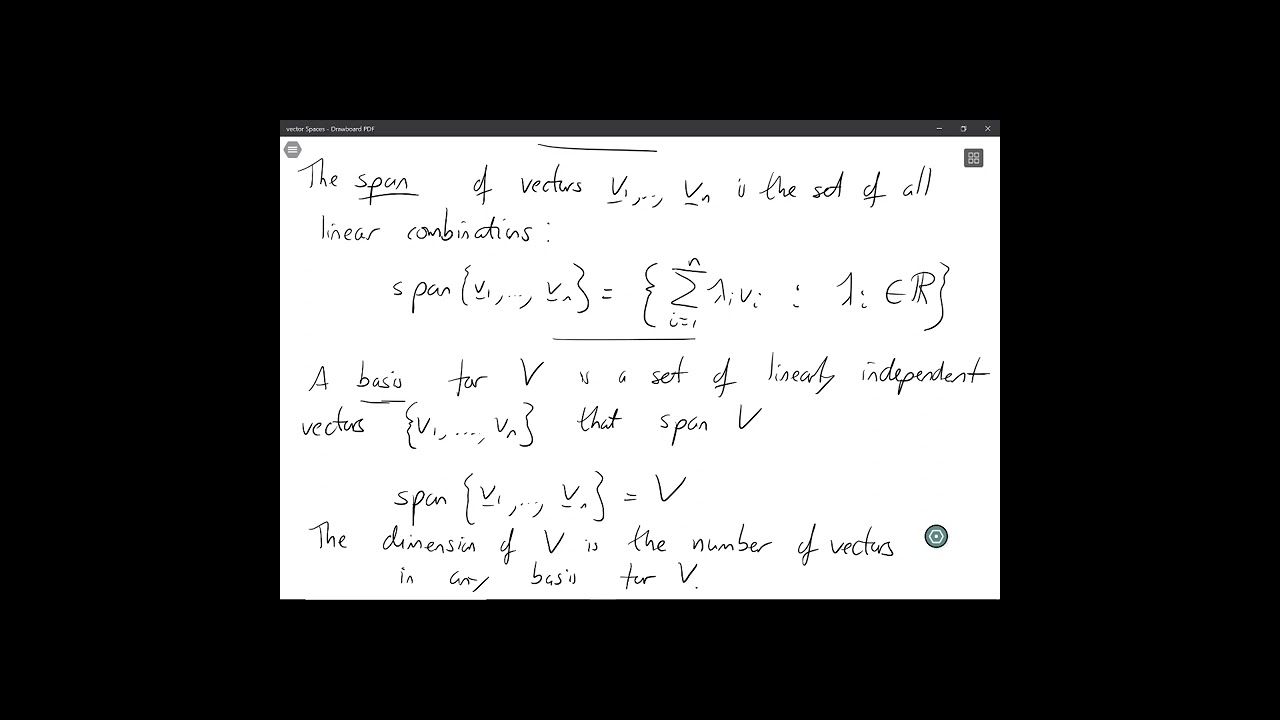 vector Spaces - Drawboard PDF
The span of vectors v₁,..., vₙ is the set of all
linear combinations:
span{v₁,..., vₙ} = { ∑ⁿᵢ₌₁ λᵢvᵢ : λᵢ ∈ ℝ }
A basis for V is a set of linearly independent
vectors {v₁, ..., vₙ} that span V
span {v₁,..., vₙ} = V
The dimension of V is the number of vectors
in any basis for V.